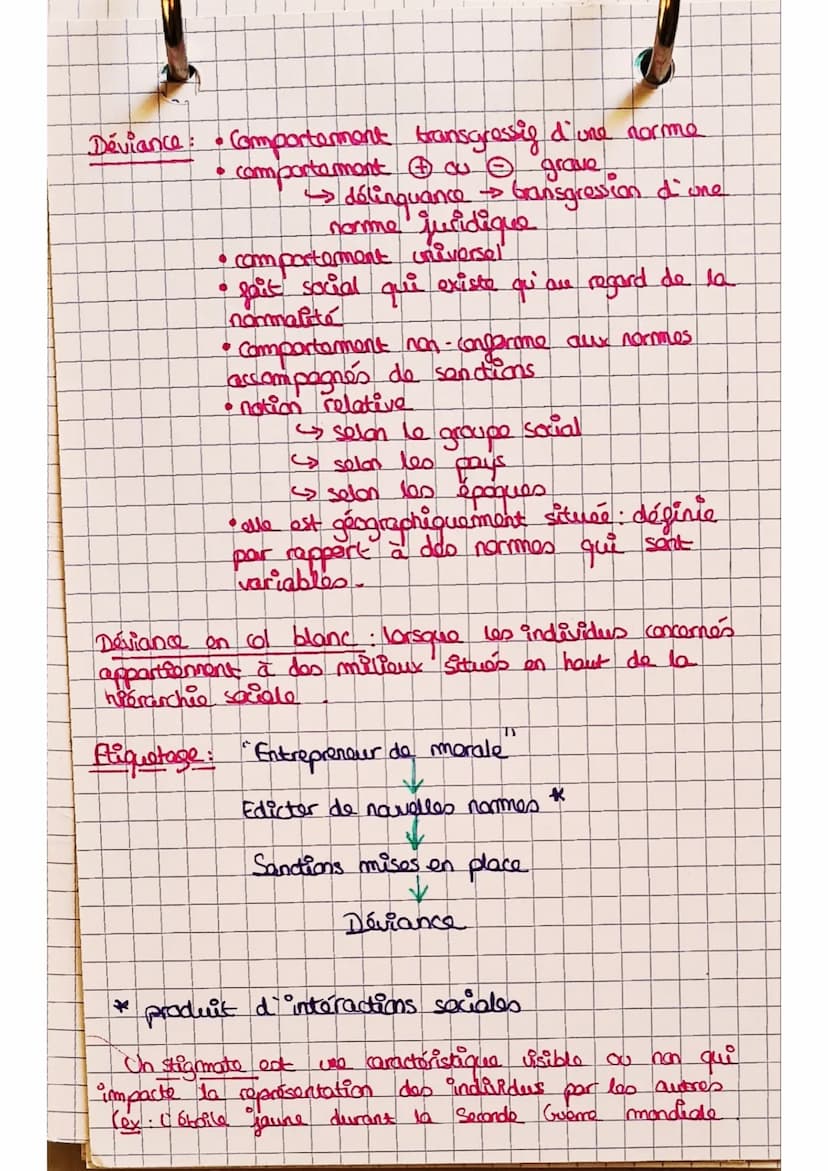 Déviance : • Comportement transgressif d'une norme
• comportement ⊕ ou ⊖ grave
↳ délinquance → transgression d'une
norme juridique
• comportement universel
• fait social qui existe qu'au regard de la
normalité
• comportement non-conforme aux normes
accompagnés de sanctions
• notion relative
↳ selon le groupe social
↳ selon les pays
↳ selon les époques
• elle est géographiquement située : définie
par rapport à des normes qui sont
variables.
Déviance en col blanc : lorsque les individus concernés
appartiennent à des milieux situés en haut de la
hiérarchie sociale.
Etiquetage : "Entrepreneur de morale"
↓
Edicter de nouvelles normes *
↓
Sanctions mises en place
↓
Déviance
* produit d'intéractions sociales
Un stigmate est une caractéristique visible ou non qui
impacte la représentation des individus par les autres
(ex : l'étoile jaune durant la Seconde Guerre mondiale